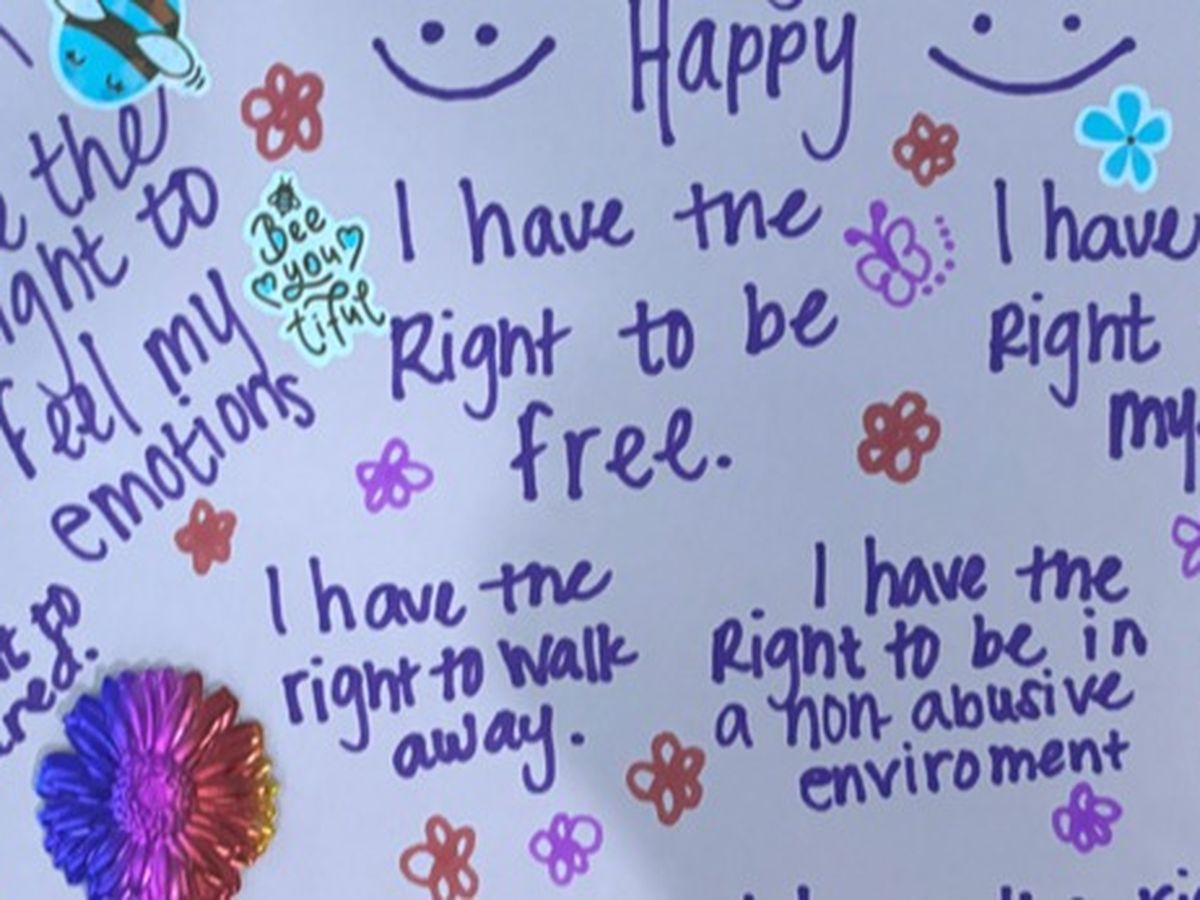 Happy
the
to
feel my
emotions
Bee
you
tiful
I have the
Right to be
free.
I have
Right
my
I have the
right to walk
away.
I have the
Right to be in
a non abusive
enviroment